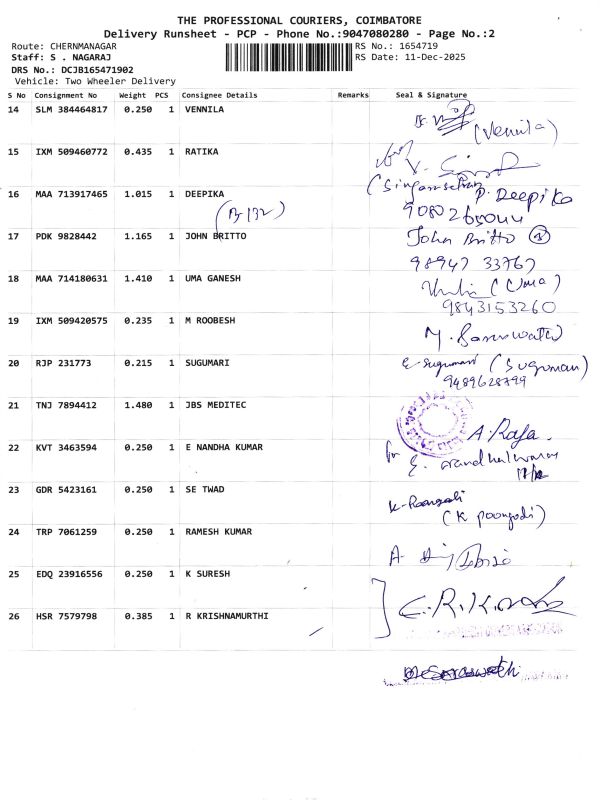 THE PROFESSIONAL COURIERS, COIMBATORE
Delivery Runsheet - PCP - Phone No.:9047080280 - Page No.:2
Route: CHERNMANAGAR RS No.: 1654719
Staff: S . NAGARAJ RS Date: 11-Dec-2025
DRS No.: DCJB165471902
Vehicle: Two Wheeler Delivery
S No Consignment No Weight PCS Consignee Details Remarks Seal & Signature
14 SLM 384464817 0.250 1 VENNILA
(Vennila)
15 IXM 509460772 0.435 1 RATIKA
16 MAA 713917465 1.015 1 DEEPIKA P. Deepika
(B 132)
17 PDK 9828442 1.165 1 JOHN BRITTO John Britto
98947 33767
18 MAA 714180631 1.410 1 UMA GANESH (Uma)
9843153260
19 IXM 509420575 0.235 1 M ROOBESH
20 RJP 231773 0.215 1 SUGUMARI
9489628799
21 TNJ 7894412 1.480 1 JBS MEDITEC
A. Raja.
22 KVT 3463594 0.250 1 E NANDHA KUMAR for
23 GDR 5423161 0.250 1 SE TWAD
(K poongodi)
24 TRP 7061259 0.250 1 RAMESH KUMAR
25 EDQ 23916556 0.250 1 K SURESH
26 HSR 7579798 0.385 1 R KRISHNAMURTHI